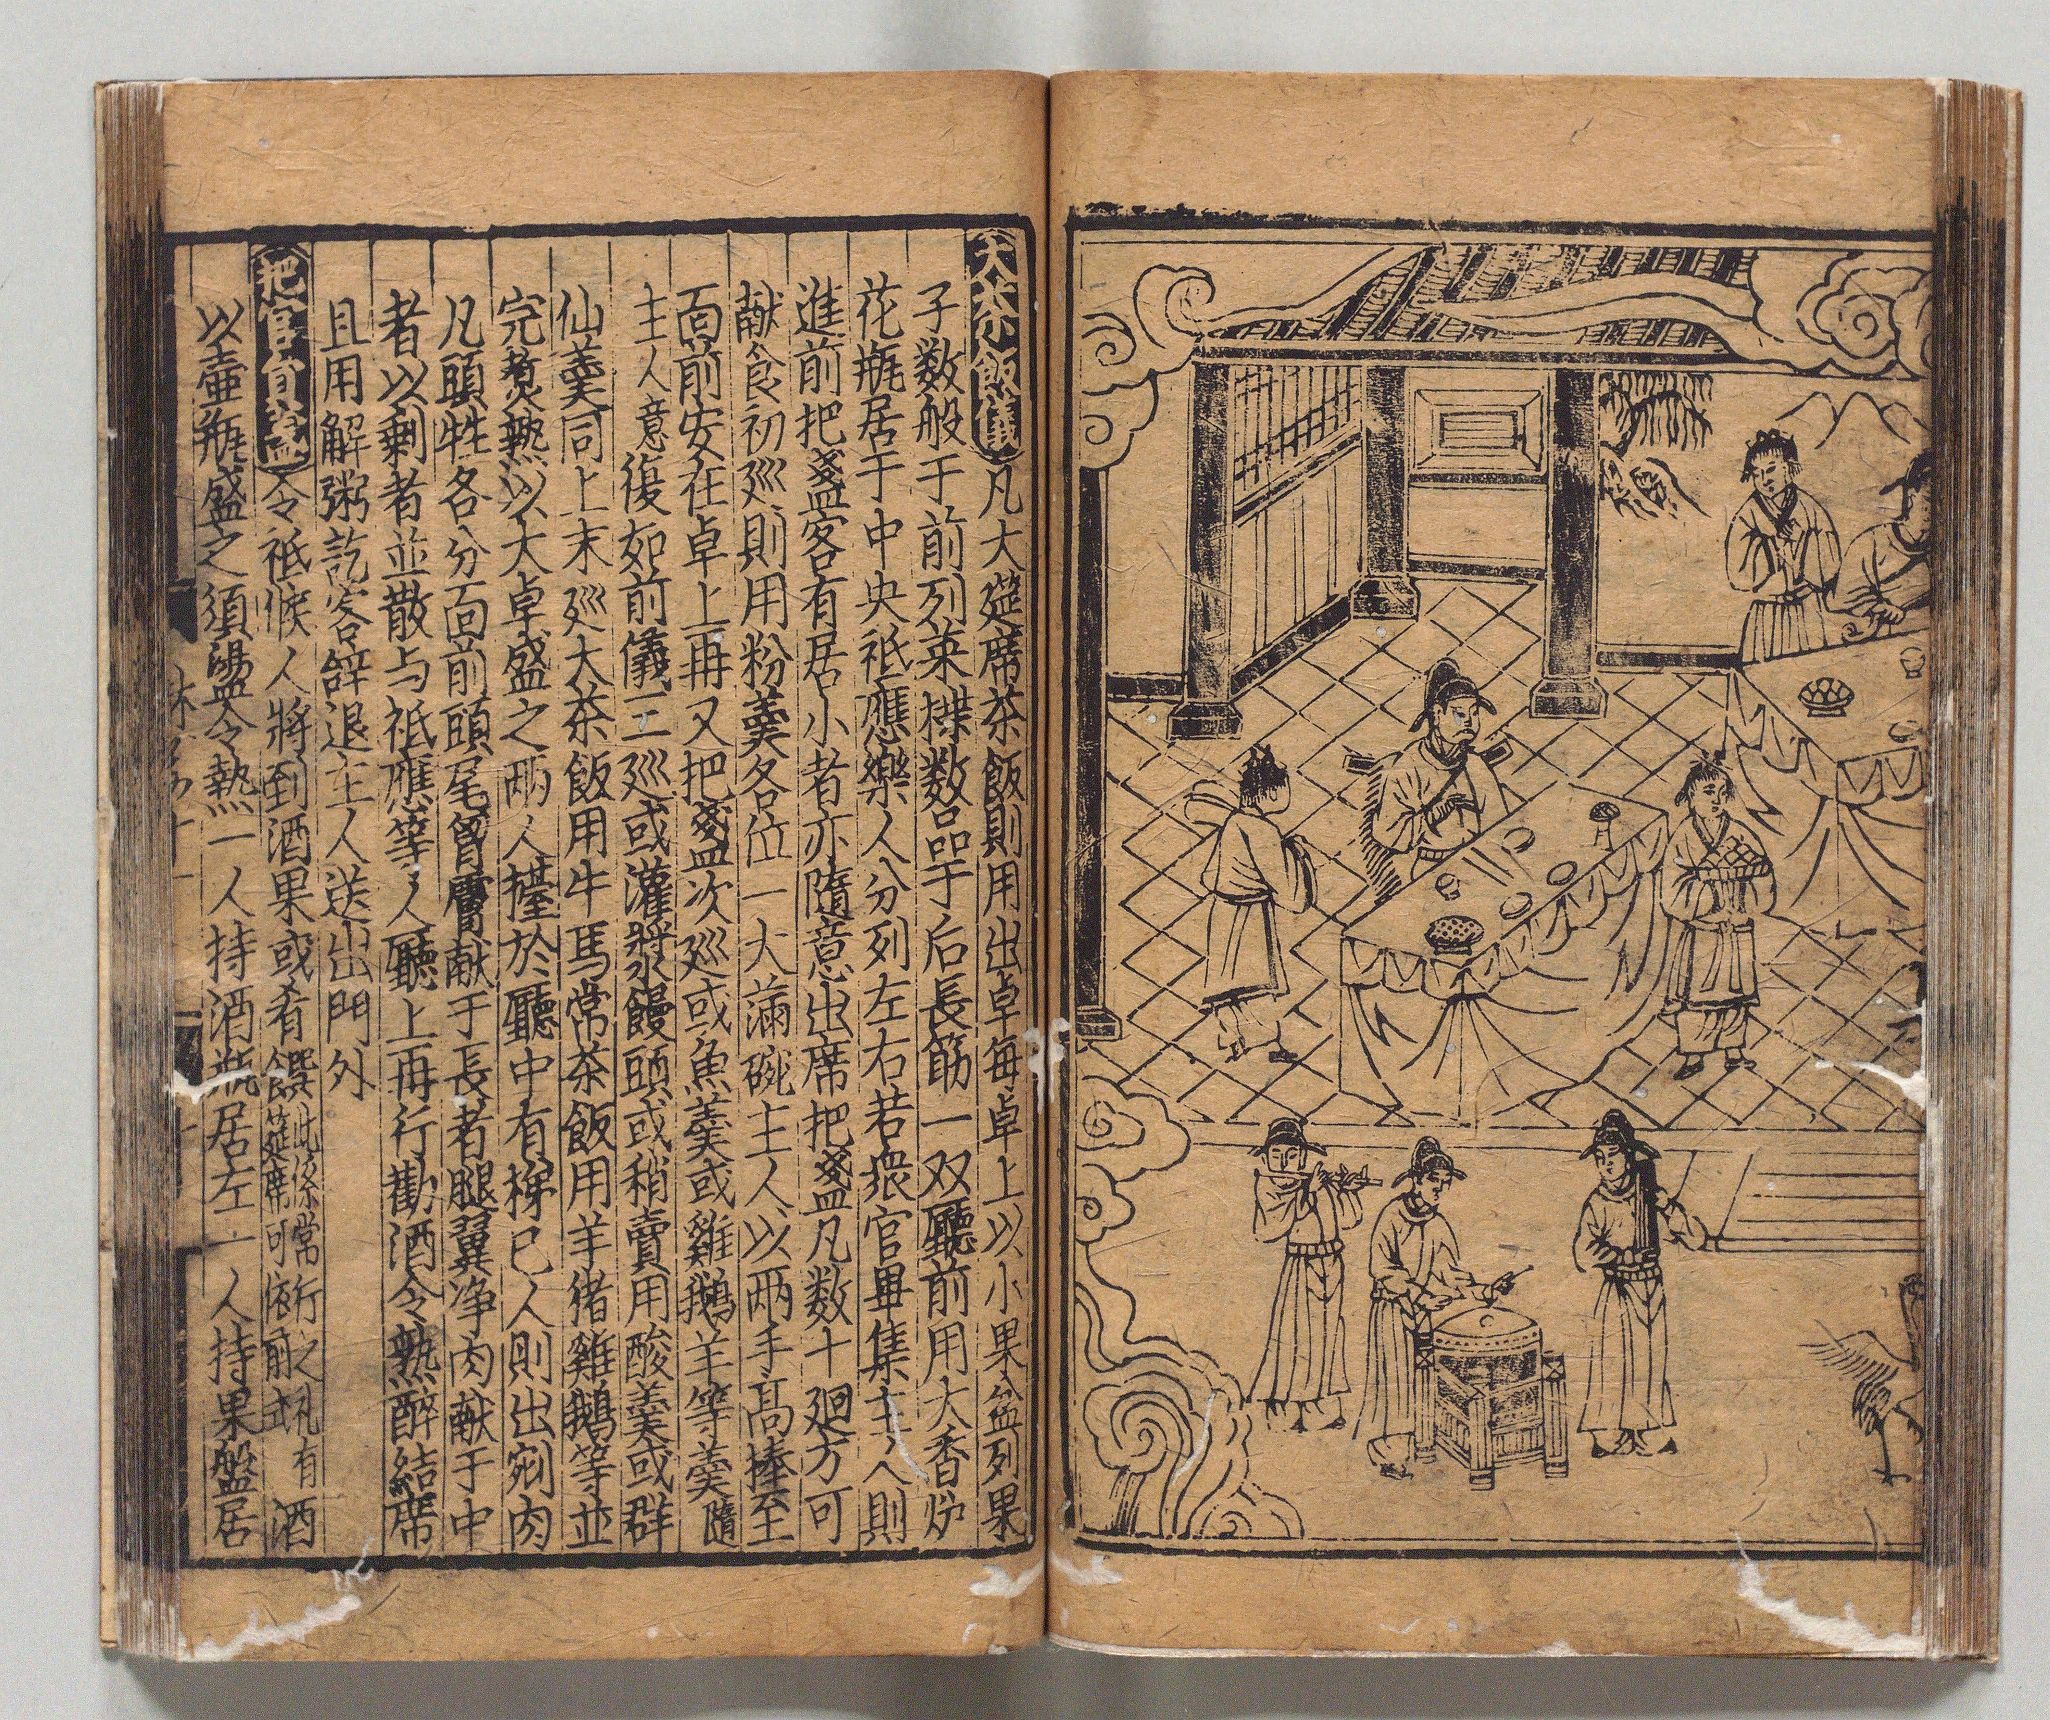 大茶飯儀 凡大筵席茶飯則用出卓每卓上以小果盆列果
子数般于前列菜楪数品于后長筯一双廳前用大香炉
花瓶居于中央祗應樂人分列左右若衆官畢集主人則
進前把盞客有居小者亦隨意出席把盞凡数十廻方可
献食初巡則用粉羹各位一大滿碗主人以两手高捧至
面前安在卓上再又把盞次巡或魚羹或雞鵝羊等羹隨
主人意復如前儀三巡或灌漿饅頭或稍賣用酸羹或群
仙羹同上末巡大茶飯用牛馬常茶飯用羊猪雞鵝等並
完煑熟以大卓盛之两人擡於廳中有梯己人則出剜肉
凡頭牲各分面前頭尾胷膚献于長者腿翼净肉献于中
者以剩者並散与祗應等人廳上再行勸酒令熟醉結席
且用解粥訖客辞退主人送出門外
把官員盞 令祗候人將到酒果或有饌此係常行之礼有酒食筵席可依前式
以壷瓶盛之須盪令熱一人持酒瓶居左一人持果盤居